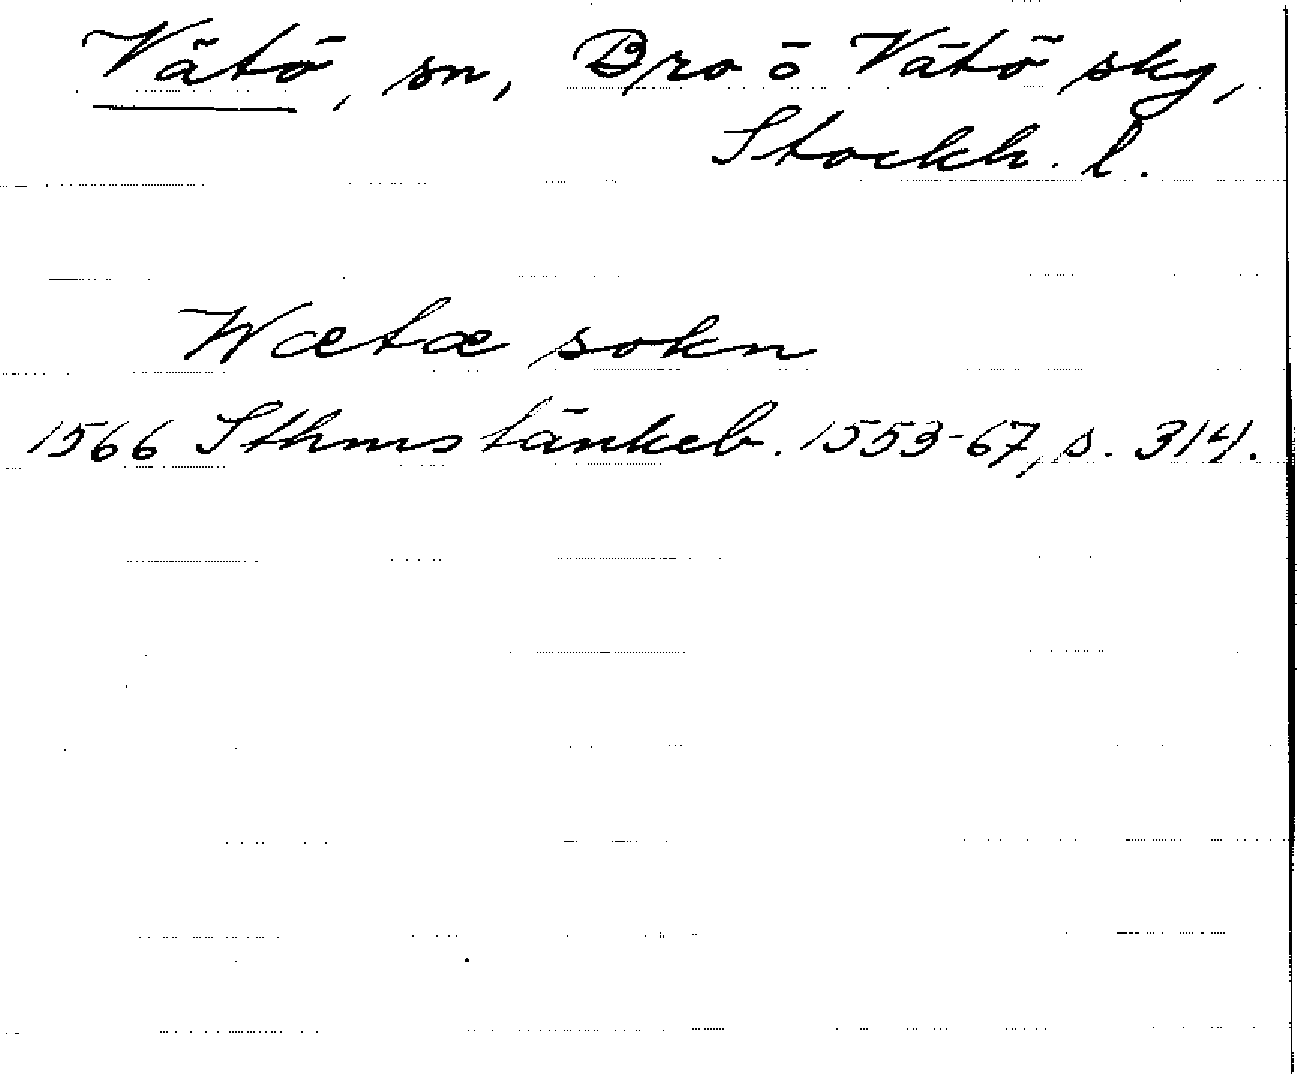 Vätö, sn, Bro o Vätö skg,
Stockh. l.
Wætæ sokn
1566 Sthms tänkeb. 1553-67, s. 314.